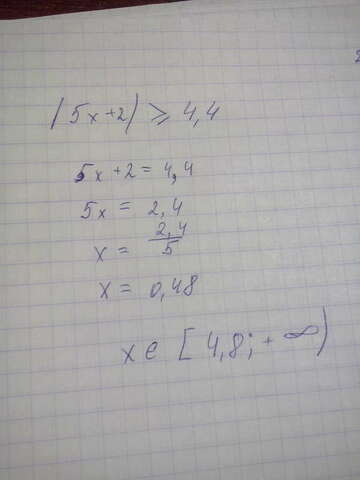 |5x+2| ⩾ 4,4
5x+2 = 4,4
5x = 2,4
x = 2,4/5
x = 0,48
x ∈ [4,8; +∞)